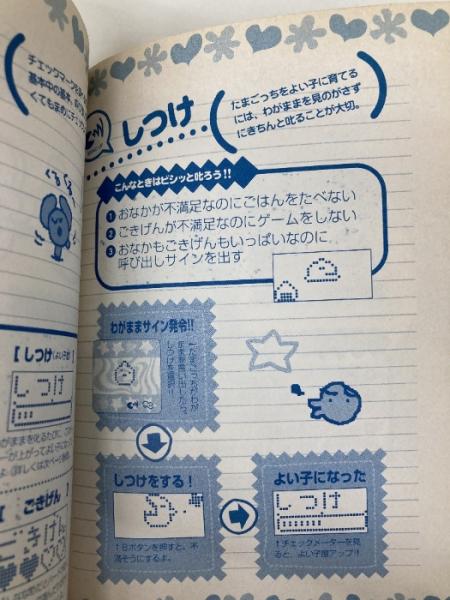 チェックマーク
基本中の基本、
くてもまめにチェッ
【 しつけ(よい子度)
しつけ
ままを叱るたびに、
ーが上がってよい子にな
よ。(詳しくは次ページ参照
【 ごきげん
ごきげん
しつけ
たまごっちをよい子に育てる
には、わがままを見のがさず
にきちんと叱ることが大切。
こんなときはビシッと叱ろう!!
1 おなかが不満足なのにごはんをたべない
2 ごきげんが不満足なのにゲームをしない
3 おなかもごきげんもいっぱいなのに
呼び出しサインを出す
わがままサイン発令!!
↑たまごっちがわが
しつけを選択!!
しつけをする!
↑Bボタンを押すと、不
満そうにするよ。
よい子になった
しつけ
↑チェックメーターを見
ると、よい子度アップ!!